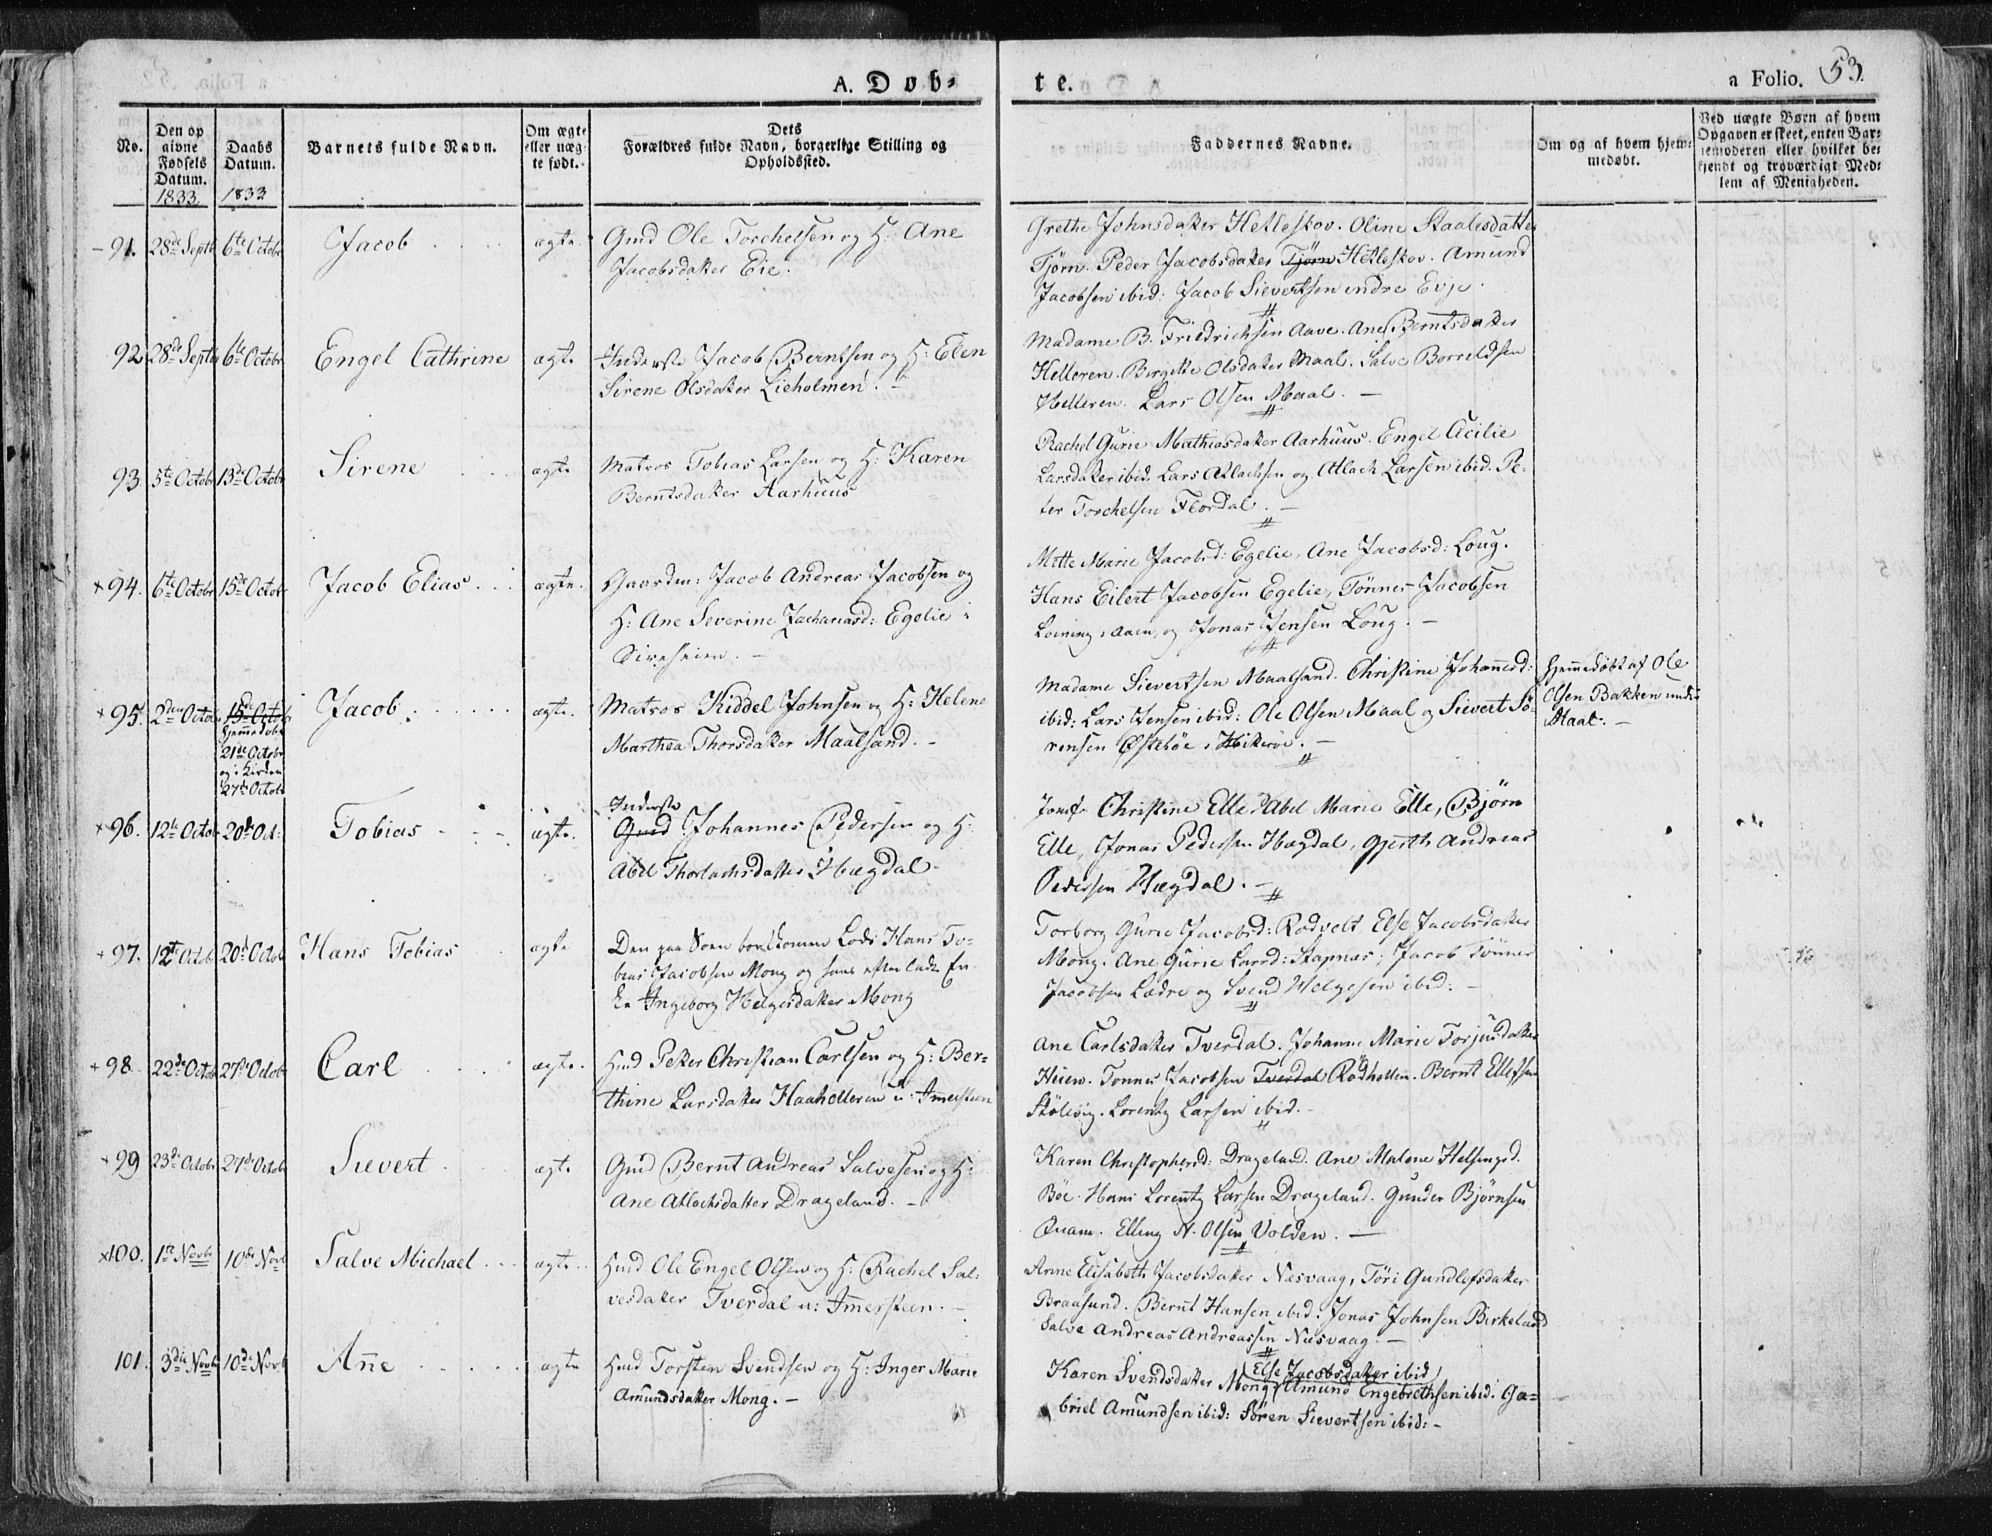 A. Døb-
te.
a Folio. 53.
No.
Den op
givne
Fødsels
Datum.
1833.
Daabs
Datum.
1833
Barnets fulde Navn.
Om ægte
eller uæg
te født.
Dets
Forældres fulde Navn, borgerlige Stilling og
Opholdssted.
Faddernes Navne.
Om og af hvem hjem-
medøbt.
Ved uægte Børn af hvem
Opgaven er skeet, enten Bar-
nemoderen eller hvilket be-
kjendt og troværdigt Med-
lem af Menigheden.
91. 28de Septb 6te Octobr Jacob ægte Gmd Ole Torchelsen og H: Ane
Jacobsdatter Eie.
Grethe Johnsdatter Hetleskov. Oline Staalesdatter
Tjørn. Peder Jacobsdatter Tjørn Hetleskov. Amund
Jacobsen ibid: Jacob Sievertsen indre Evje.
92 28de Septb 6te Octobr Engel Cathrine ægte Inderste Jacob Berntsen og H: Elen
Sirene Olsdatter Lieholmen. -
Madame B. Friedrichsen Aave. Ane Berntsdatter
Helleren. Birgitte Olsdatter Maal. Salve Borreldsen
Helleren. Lars Olsen Maal. -
93 5te Octobr 13de Octobr Sirene ægte Matros Tobias Larsen og H: Karen
Berntsdatter Aarhuus
Rachel Gurie Mathiasdatter Aarhuus. Engel Cicilie
Larsdatter ibid. Lars Atlachsen og Atlach Larsen ibid. Pe-
ter Torchelsen Flordal. -
94. 6te Octobr 15de Octobr Jacob Elias ægte. Gaardm: Jacob Andreas Jacobsen og
H: Ane Severine Zachariasd: Egelie i
Sireheien. -
Mette Marie Jacobsd: Egelie, Ane Jacobsd: Loug.
Hans Eilert Jacobsen Egelie, Tønnes Jacobsen
Loining i Aaen, og Jonas Jensen Loug. -
95. 2den Octobr 15de Octobr Jacob. ægte. Matros Kiddel Johnsen og H: Helene
hjemmedøbt
21de Octobr
og i Kirken
27de Octobr
Marthea Thorsdatter Maalsand. -
Madame Sievertsen Maalsand. Christine Johannesd:
ibid: Lars Jensen ibid: Ole Olsen Maal og Sievert Sø-
rensen Østebøe i Hitterøe. -
hjemmedøbt af Ole
Olsen Bakken under
Maal. -
96. 12te Octobr 20de Oct: Tobias ægte. Inderste
Gmd Johannes Pedersen og H:
Abel Thorlachsdatter Hægdal.
Jomfr Christine Elle, Abel Marie Elle, Bjørn
Elle, Jonas Pedersen Hægdal, Gjerth Andreas
Pedersen Hægdal. -
97. 12te Octobr 20de Octobr Hans Tobias ægte Den paa Søen bortkomne Lods Hans To-
bias Jacobsen Mong og hans efterladte En-
ke Ingeborg Helgesdatter Mong
Torborg Gurie Jacobsd: Rødvelt Else Jacobsdatter
Mong. Ane Gurie Larsd: Stapnæs; Jacob Tønnes
Jacobsen Lædre og Svend Helgesen ibid: -
98 22de Octobr 27de Octobr Carl ægte. Hmd Petter Christian Carlsen og H: Ber-
thine Larsdatter Haahelleren u: Immersteen
Ane Carlsdatter Tverdal. Johanne Marie Torjusdatter
Heien. Tønnes Jacobsen Tverdal Rødhollen. Bernt Ellefsen
Stølevig. Lorentz Larsen ibid. -
99 23de Octobr 27de Octobr Sievert ægte Gmd Bernt Andreas Salvesen og H:
Ane Atlachsdatter Drageland. -
Karen Christophersd: Drageland. Ane Malene Helsingsd.
Bøe. Hans Lorentz Larsen Drageland. Gunder Bjørnsen
Qvam. Elling N. Olsen Volden. -
100. 1te Novbr 10de Novb Salve Michael ægte Hmd Ole Engel Olsen og H: Rachel Sal-
vesdatter Tverdal u: Immersteen. -
Anne Elisabeth Jacobsdatter Næsvaag, Tøri Gundlefsdatter
Braasund. Bernt Hansen ibid: Jonas Johnsen Birkeland
Salve Andreas Andreassen Næsvaag. -
101. 3die Novbr 10de Novb Añe ægte Hmd Torsten Svendsen og H: Inger Marie
Amundsdatter Mong. -
Else Jacobsdatter ibid
Karen Svendsdatter Mong, Amund Engebrethsen ibid. Ga-
briel Amundsen ibid: Søren Sievertsen ibid: -